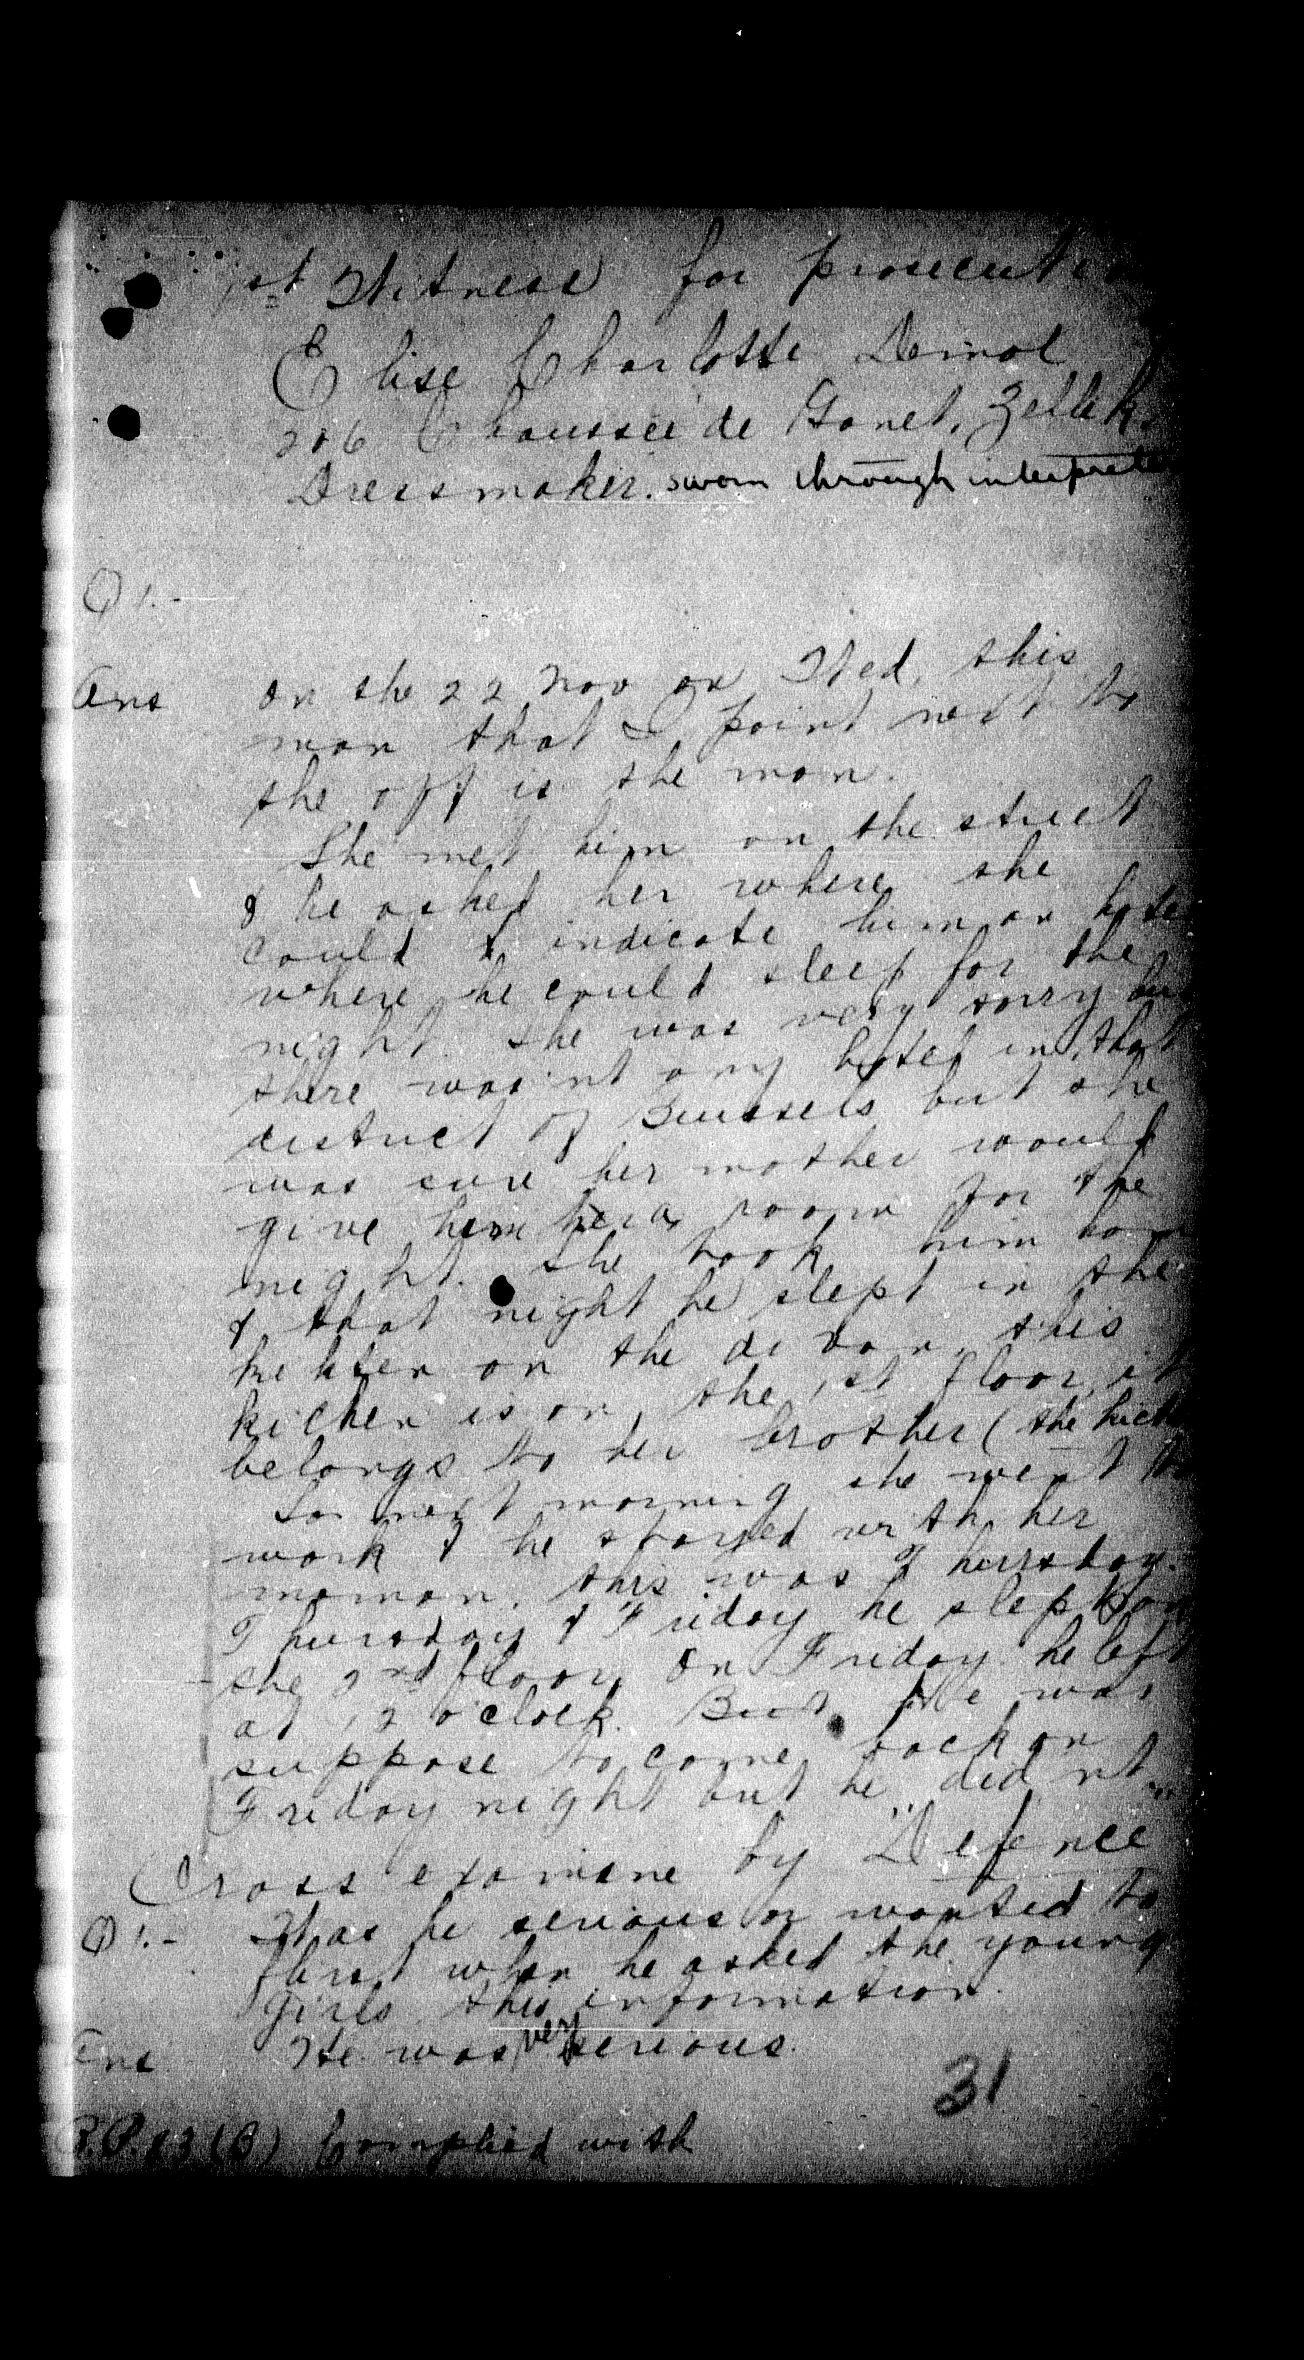 1st Witness for prosecution
Elise Charlotte Demol
206 Chaussée de Ganet, Zellik,
Dressmaker. sworn through interpreter
Q 1.-
Ans On the 22 Nov on Wed. this
man that I point next to
the off is the man.
She met him on the street
& he asked her where she
could indicate him an hotel
where he could sleep for the
night. She was very sorry but
there was'nt any hotel in that
district of Brussels but she
was sure her mother would
give him a room for the
night. She took him home
& that night he slept in the
kichen on the divan, this
kichen is on the 1st floor, it
belongs to her brother (the
So next morning she went to
work & he stayed with her
maman, this was Thursday.
Thursday & Friday he slept on
the 2nd floor. On Friday he left
at 12 o'clock. But he was
suppose to come back on
Friday night but he did'nt.
Cross examine by "Defence"
Q 1.- Was he serious or wanted to
flirt when he asked the young
girls this information.
Ans He was very serious.
31
R.P. 83 (B) Complied with